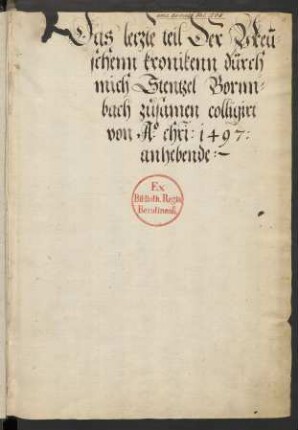 Das letzte teil Der Preu
schenn kronikenn durch
mich Stentzel Bornn-
bach zusamen colligirt
von Aº chri: 1497:
anhebende:~
Ex
Biblioth. Regia
Berolinensi.